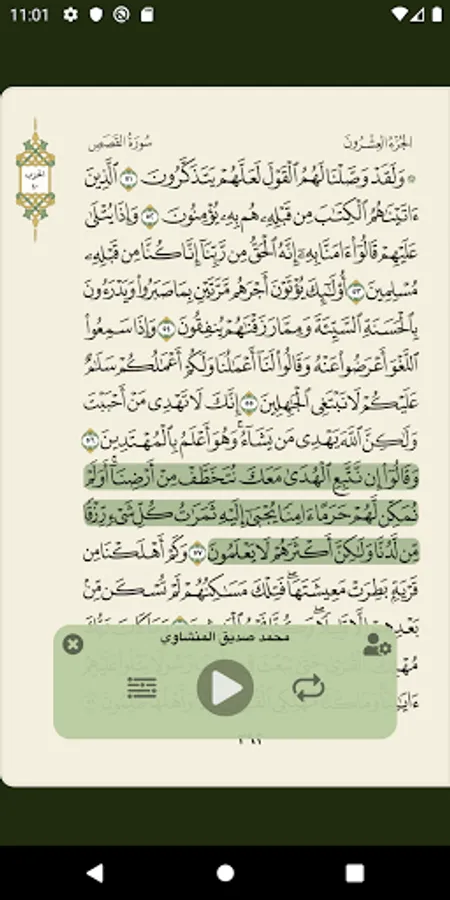 11:01
سُورَةُ القَصَصِ
الجُزْءُ العِشْرُونَ
الحزب
٤٠
۞ وَلَقَدْ وَصَّلْنَا لَهُمُ ٱلْقَوْلَ لَعَلَّهُمْ يَتَذَكَّرُونَ ٥١ ٱلَّذِينَ
ءَاتَيْنَٰهُمُ ٱلْكِتَٰبَ مِن قَبْلِهِۦ هُم بِهِۦ يُؤْمِنُونَ ٥٢ وَإِذَا يُتْلَىٰ
عَلَيْهِمْ قَالُوٓا۟ ءَامَنَّا بِهِۦٓ إِنَّهُ ٱلْحَقُّ مِن رَّبِّنَآ إِنَّا كُنَّا مِن قَبْلِهِۦ
مُسْلِمِينَ ٥٣ أُو۟لَٰٓئِكَ يُؤْتَوْنَ أَجْرَهُم مَّرَّتَيْنِ بِمَا صَبَرُوا۟ وَيَدْرَءُونَ
بِٱلْحَسَنَةِ ٱلسَّيِّئَةَ وَمِمَّا رَزَقْنَٰهُمْ يُنفِقُونَ ٥٤ وَإِذَا سَمِعُوا۟
ٱللَّغْوَ أَعْرَضُوا۟ عَنْهُ وَقَالُوا۟ لَنَآ أَعْمَٰلُنَا وَلَكُمْ أَعْمَٰلُكُمْ سَلَٰمٌ
عَلَيْكُمْ لَا نَبْتَغِى ٱلْجَٰهِلِينَ ٥٥ إِنَّكَ لَا تَهْدِى مَنْ أَحْبَبْتَ
وَلَٰكِنَّ ٱللَّهَ يَهْدِى مَن يَشَآءُ ۚ وَهُوَ أَعْلَمُ بِٱلْمُهْتَدِينَ ٥٦
وَقَالُوٓا۟ إِن نَّتَّبِعِ ٱلْهُدَىٰ مَعَكَ نُتَخَطَّفْ مِنْ أَرْضِنَآ ۚ أَوَلَمْ
نُمَكِّن لَّهُمْ حَرَمًا ءَامِنًا يُجْبَىٰٓ إِلَيْهِ ثَمَرَٰتُ كُلِّ شَىْءٍ رِّزْقًا
مِّن لَّدُنَّا وَلَٰكِنَّ أَكْثَرَهُمْ لَا يَعْلَمُونَ ٥٧ وَكَمْ أَهْلَكْنَا مِن
قَرْيَةٍۭ بَطِرَتْ مَعِيشَتَهَا ۖ فَتِلْكَ مَسَٰكِنُهُمْ لَمْ تُسْكَن مِّنۢ
محمد صديق المنشاوي